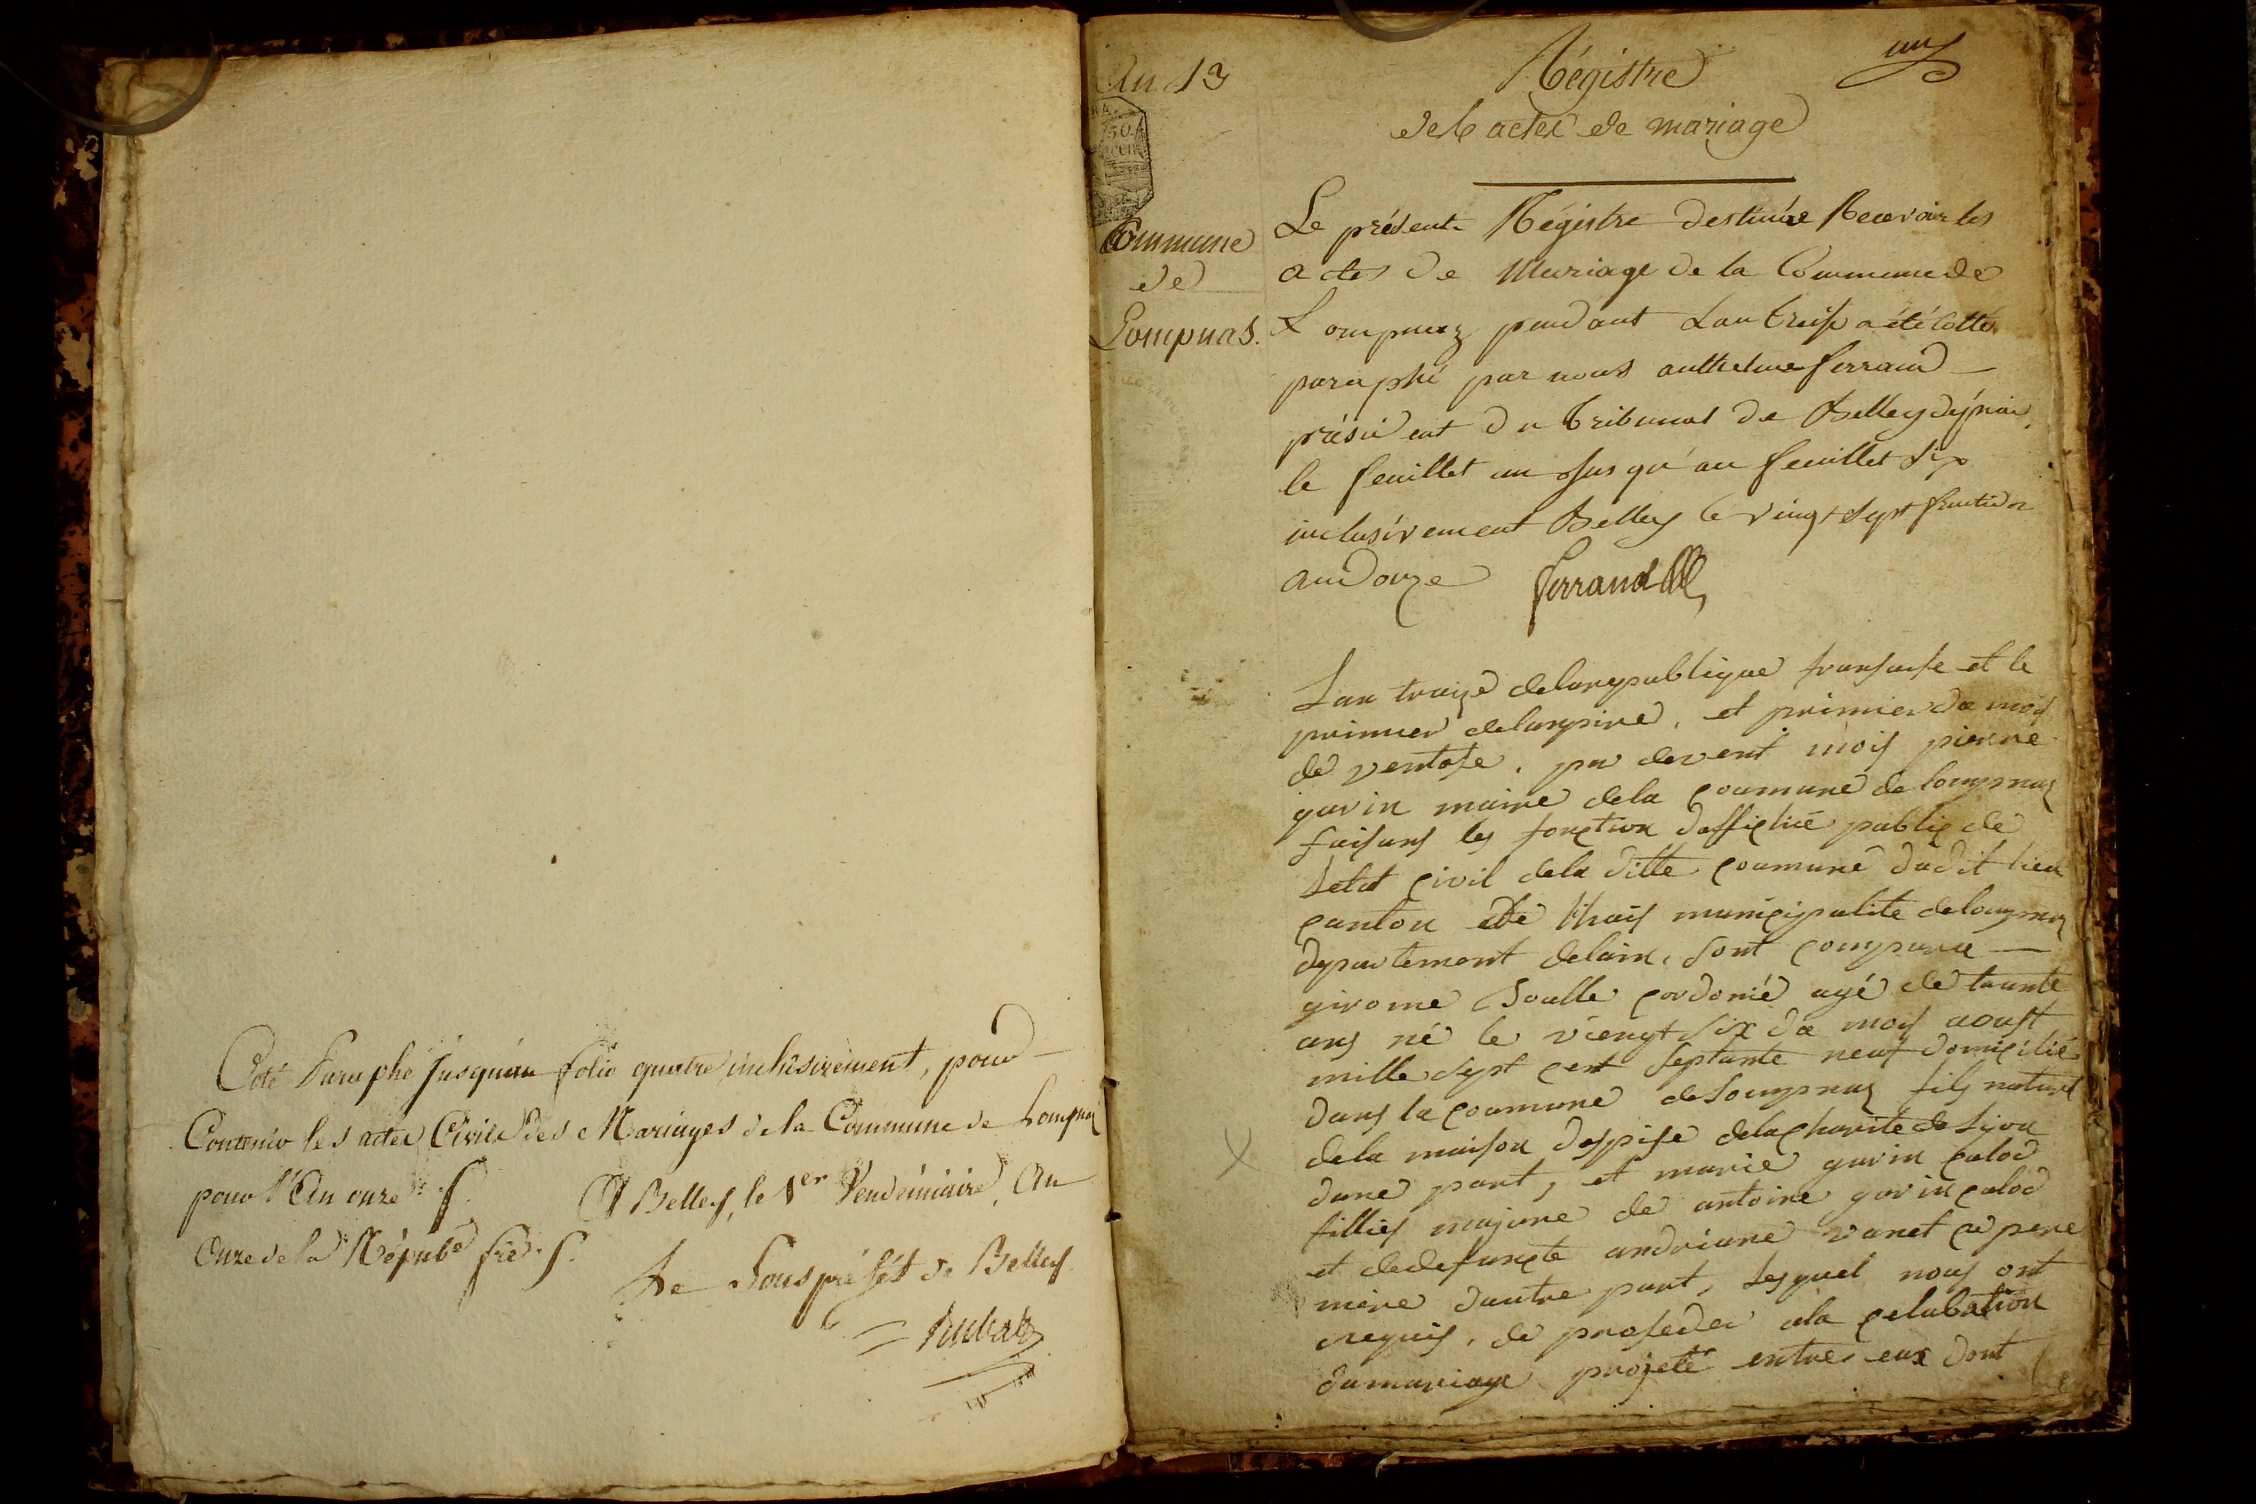 Coté Paraphé jusqu'au folio quatre inclusivement, pour
Contenir les actes Civils des Mariages de la Commune de Lompnas
pour l'An onze
A Belley, le 1er Vendémiaire, An
Onze de la Répub
Le Sous préfet de Belley
An 13
un
Régistre
des actes de mariage
50
Commune
de
Lompnas.
Le présent Régistre destiné Recevoir les
actes de Mariage de la Commune de
Lompnaz pendant Lan treise a été Cotté
paraphé par nous anthelme ferrand
président du tribunal de Belley dépuis
le feuillet un Jus qu'au feuillet Six
inclusivement Belley le vingt Sept fructidor
an Douze ferrand
Lan traize delarepublique fransaise et le
primier delanpire, et primier du mois
de ventose, par devent mois pierre
gurin maire dela coumune de lompnaz
faisans les fonction dofficié public de
Letat civil dela ditte coumune dudit lieu
canton de municipalite delompnaz
departement delain, sont comparu
girome cordonié agé de trante
ans né le viengt six du mois aoust
mille sept cent septante neuf domicilié
dans la coumune delompnaz fils naturel
dela maison dospise dela charité de Lyon
dune part, et marie gurin calod
fillies majure de antoine gurin calod
et dedefuncte andriane vanet ce pere
mere dautre part, Lesquel nous ont
requis, de proseder ala celabration
dumariage projeté entre eux dont